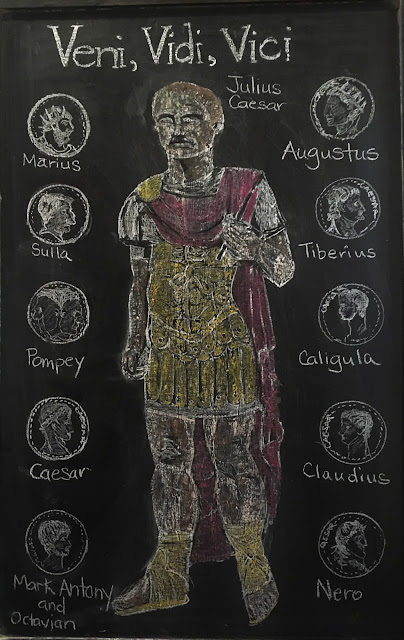 Veni, Vidi, Vici
Julius
Caesar
Marius
Sulla
Pompey
Caesar
Mark Antony
and
Octavian
Augustus
Tiberius
CAESAR
Caligula
Claudius
Nero